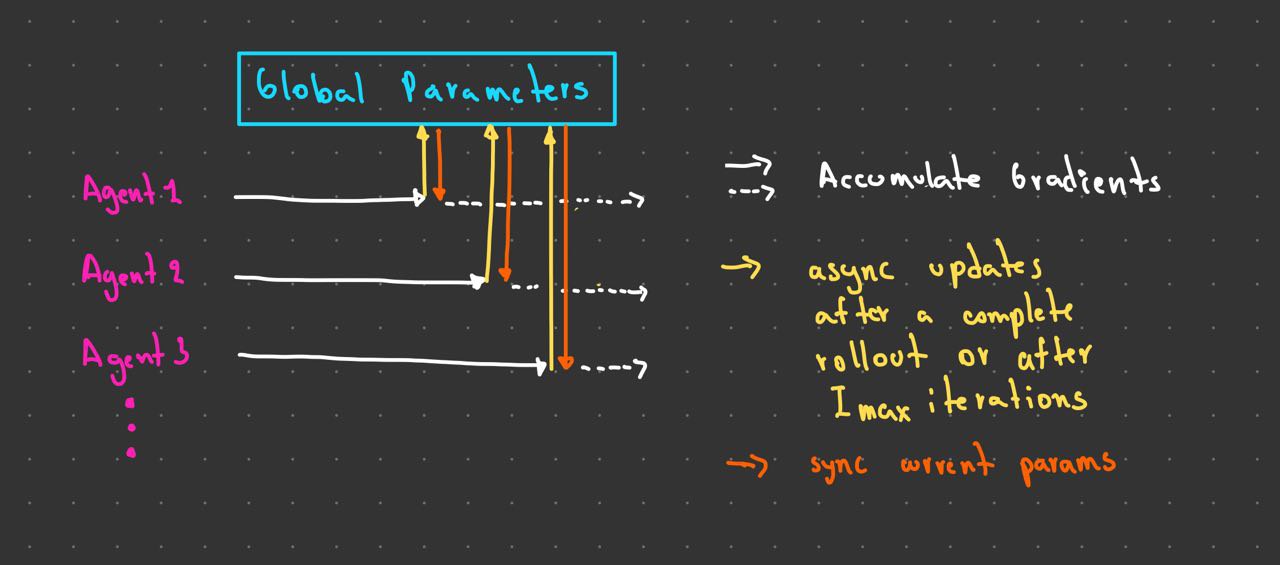 Global Parameters
Agent 1
Agent 2
Agent 3
Accumulate Gradients
async updates
after a complete
rollout or after
Imax iterations
sync current params